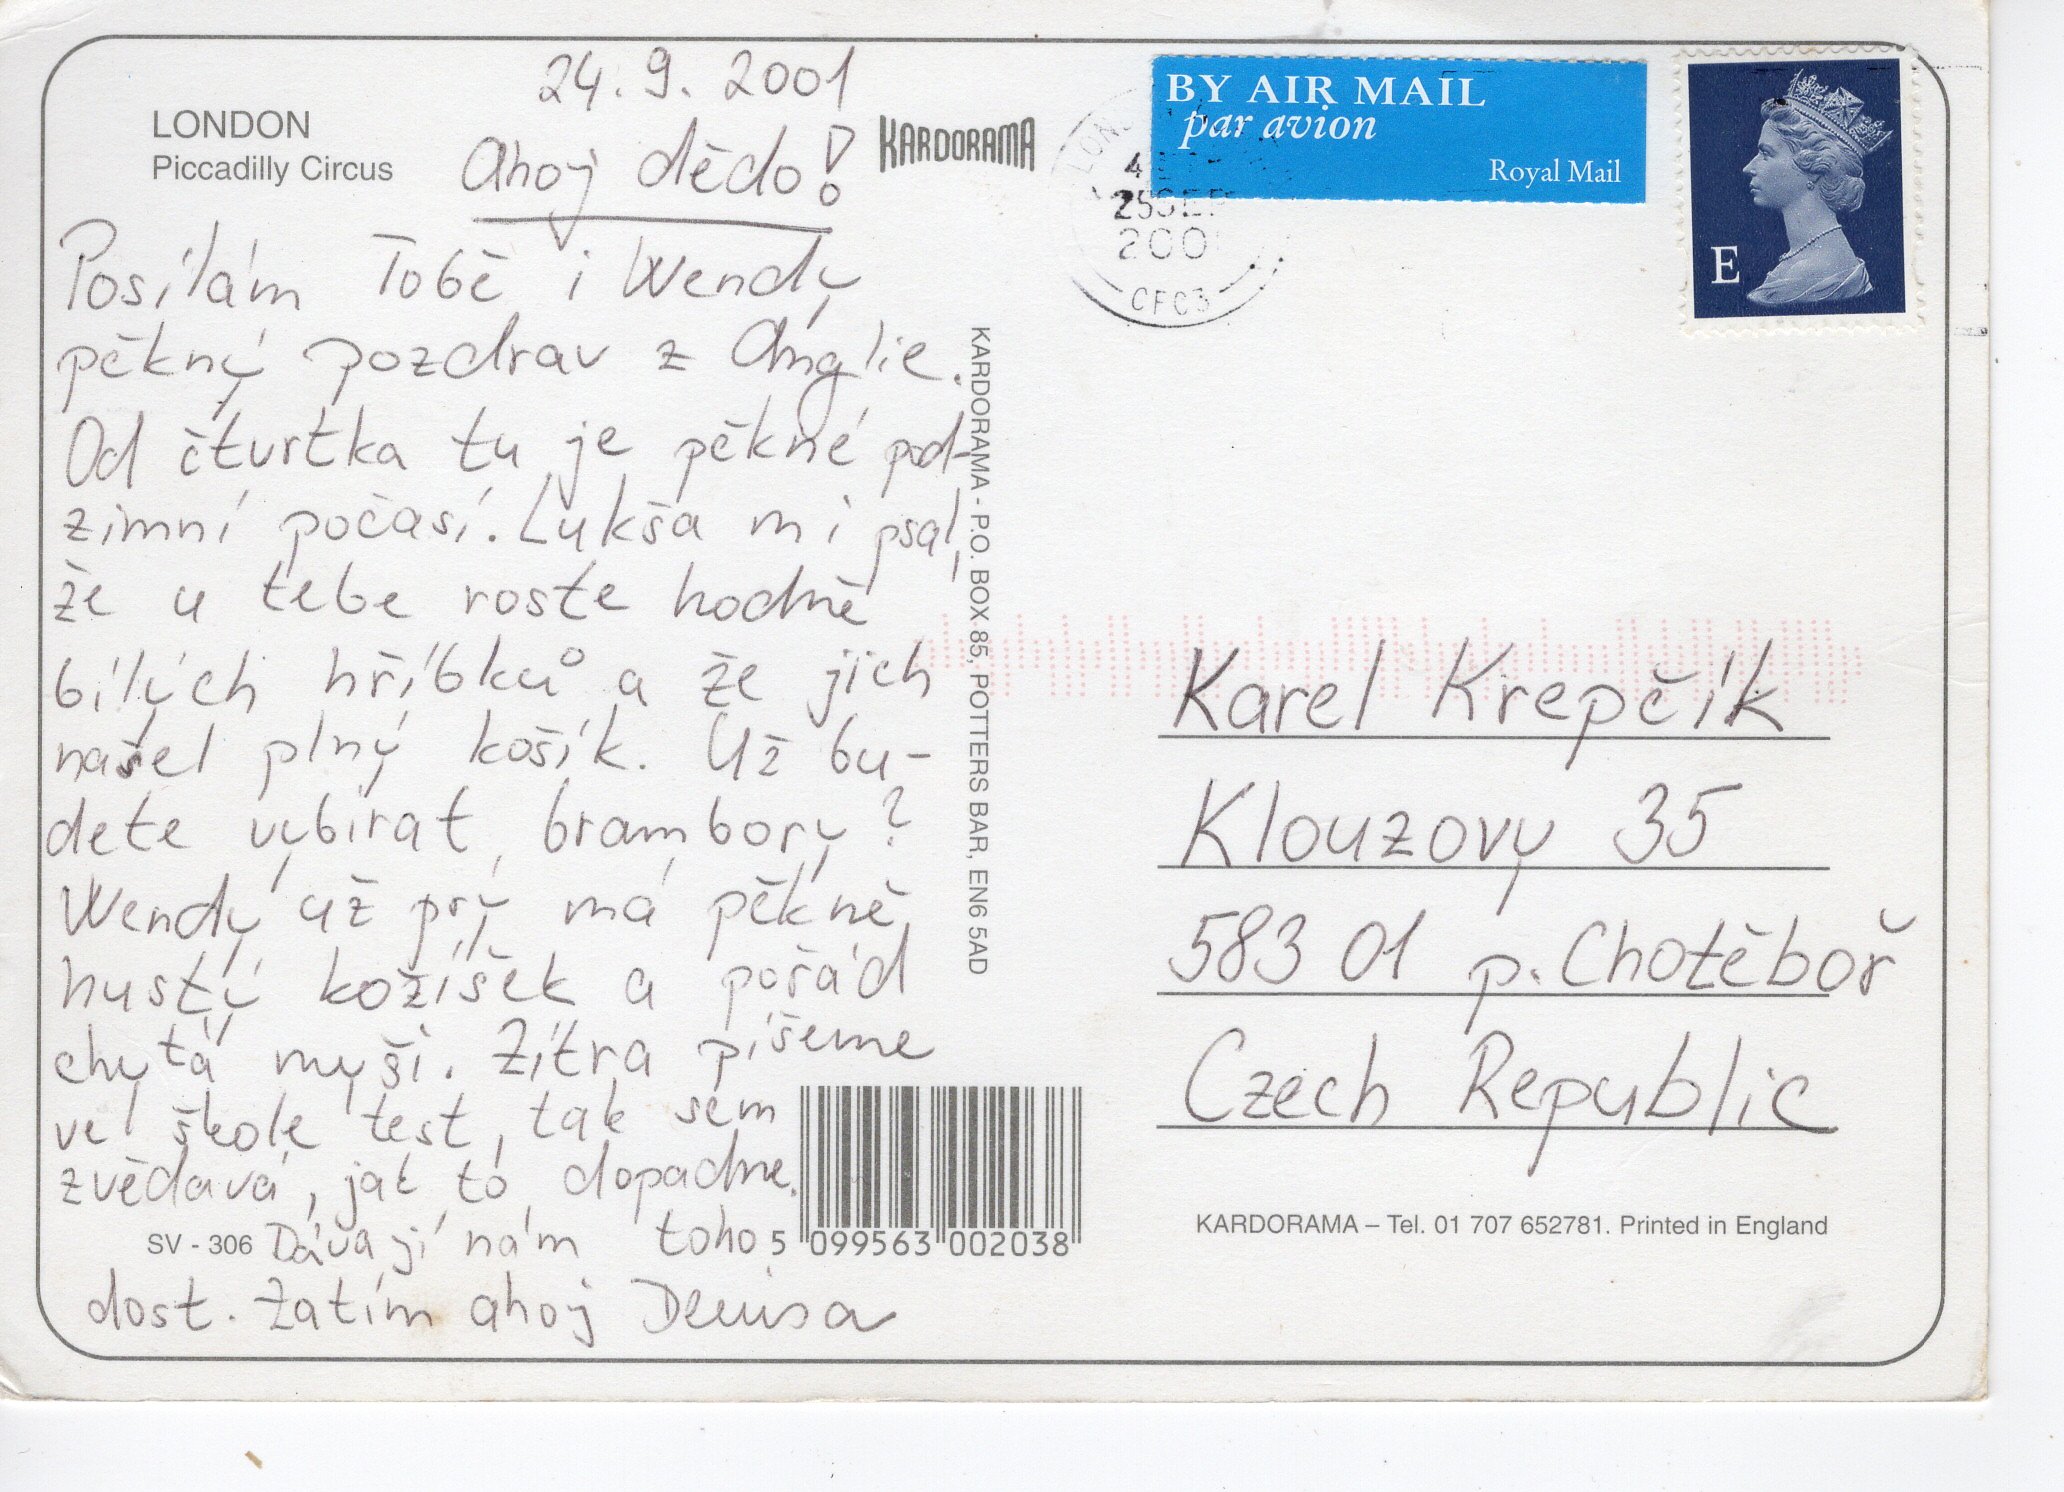 24.9.2001
LONDON
Piccadilly Circus
Ahoj dědo!
KARDORAMA
Posílám Tobě i Wendy
pěkný pozdrav z Anglie.
Od čtvrtka tu je pěkné pod-
zimní počasí. Lukša mi psal,
že u tebe roste hodně
bílých hříbků a že jich
našel plný košík. Už bu-
dete vybírat brambory?
Wendy už prý má pěkně
hustý kožíšek a pořád
chytá myši. Zítra píšeme
ve škole test, tak sem
zvědavá, jak to dopadne.
SV - 306 Dávají nám toho
dost. Zatím ahoj Denisa
5 099563 002038
KARDORAMA - P.O. BOX 85, POTTERS BAR, EN6 5AD
BY AIR MAIL
par avion
Royal Mail
25 SEP
200
CFC3
E
Karel Krepčík
Klouzovy 35
583 01 p. Chotěboř
Czech Republic
KARDORAMA – Tel. 01 707 652781. Printed in England